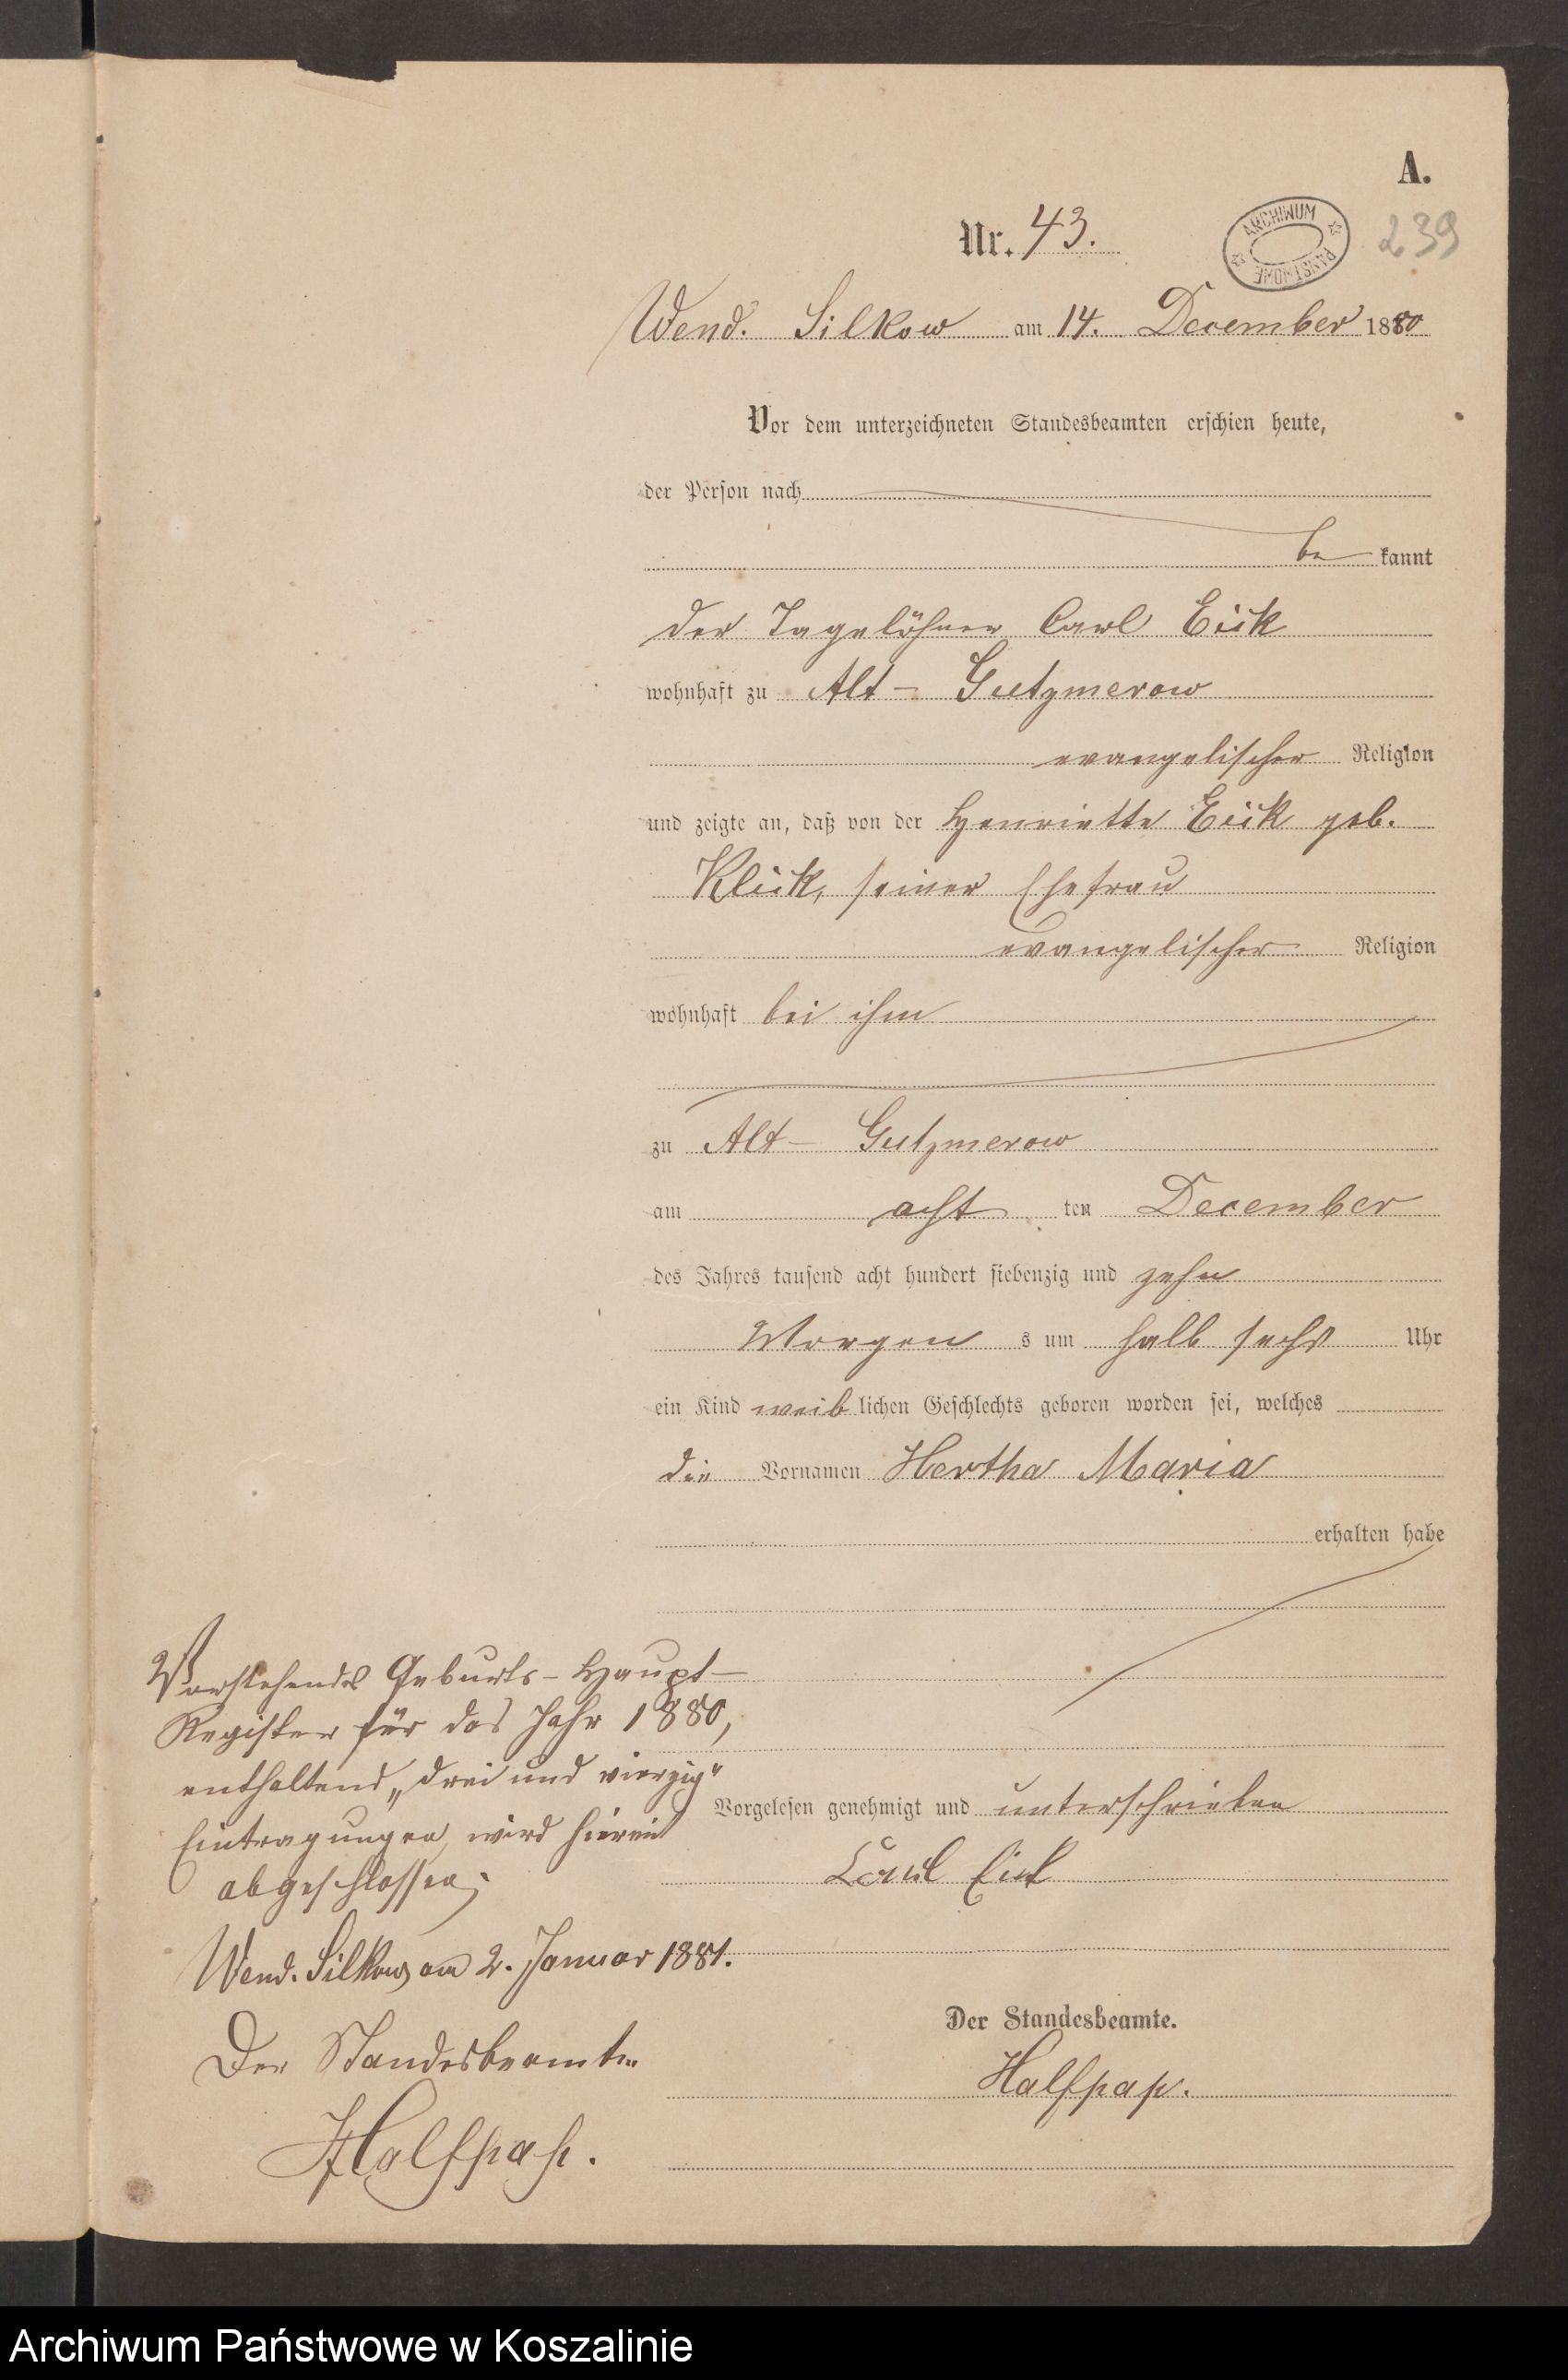 A.
Nr. 43.
ARCHIWUM PAŃSTWOWE
239
Wend. Silkow am 14. December 1880
Vor dem unterzeichneten Standesbeamten erschien heute,
der Person nach
be kannt
der Tagelöhner Carl Eick
wohnhaft zu Alt- Gutzmerow
evangelischer Religion
und zeigte an, daß von der Henriette Eick geb.
Klick, seiner Ehefrau
evangelischer Religion
wohnhaft bei ihm
zu Alt- Gutzmerow
am acht ten December
des Jahres tausend acht hundert siebenzig und zehn
Morgen s um halb sechs Uhr
ein Kind weib lichen Geschlechts geboren worden sei, welches
die Vornamen Hertha Maria
erhalten habe
Vorgelesen genehmigt und unterschrieben
Carl Eick
Der Standesbeamte.
Halfpap.
Vorstehendes Geburts-Haupt-
Register für das Jahr 1880,
enthaltend „drei und vierzig"
Eintragungen, wird hiermit
abgeschlossen;
Wend. Silkow am 2. Januar 1881.
Der Standesbeamte
Halfpap.
Archiwum Państwowe w Koszalinie